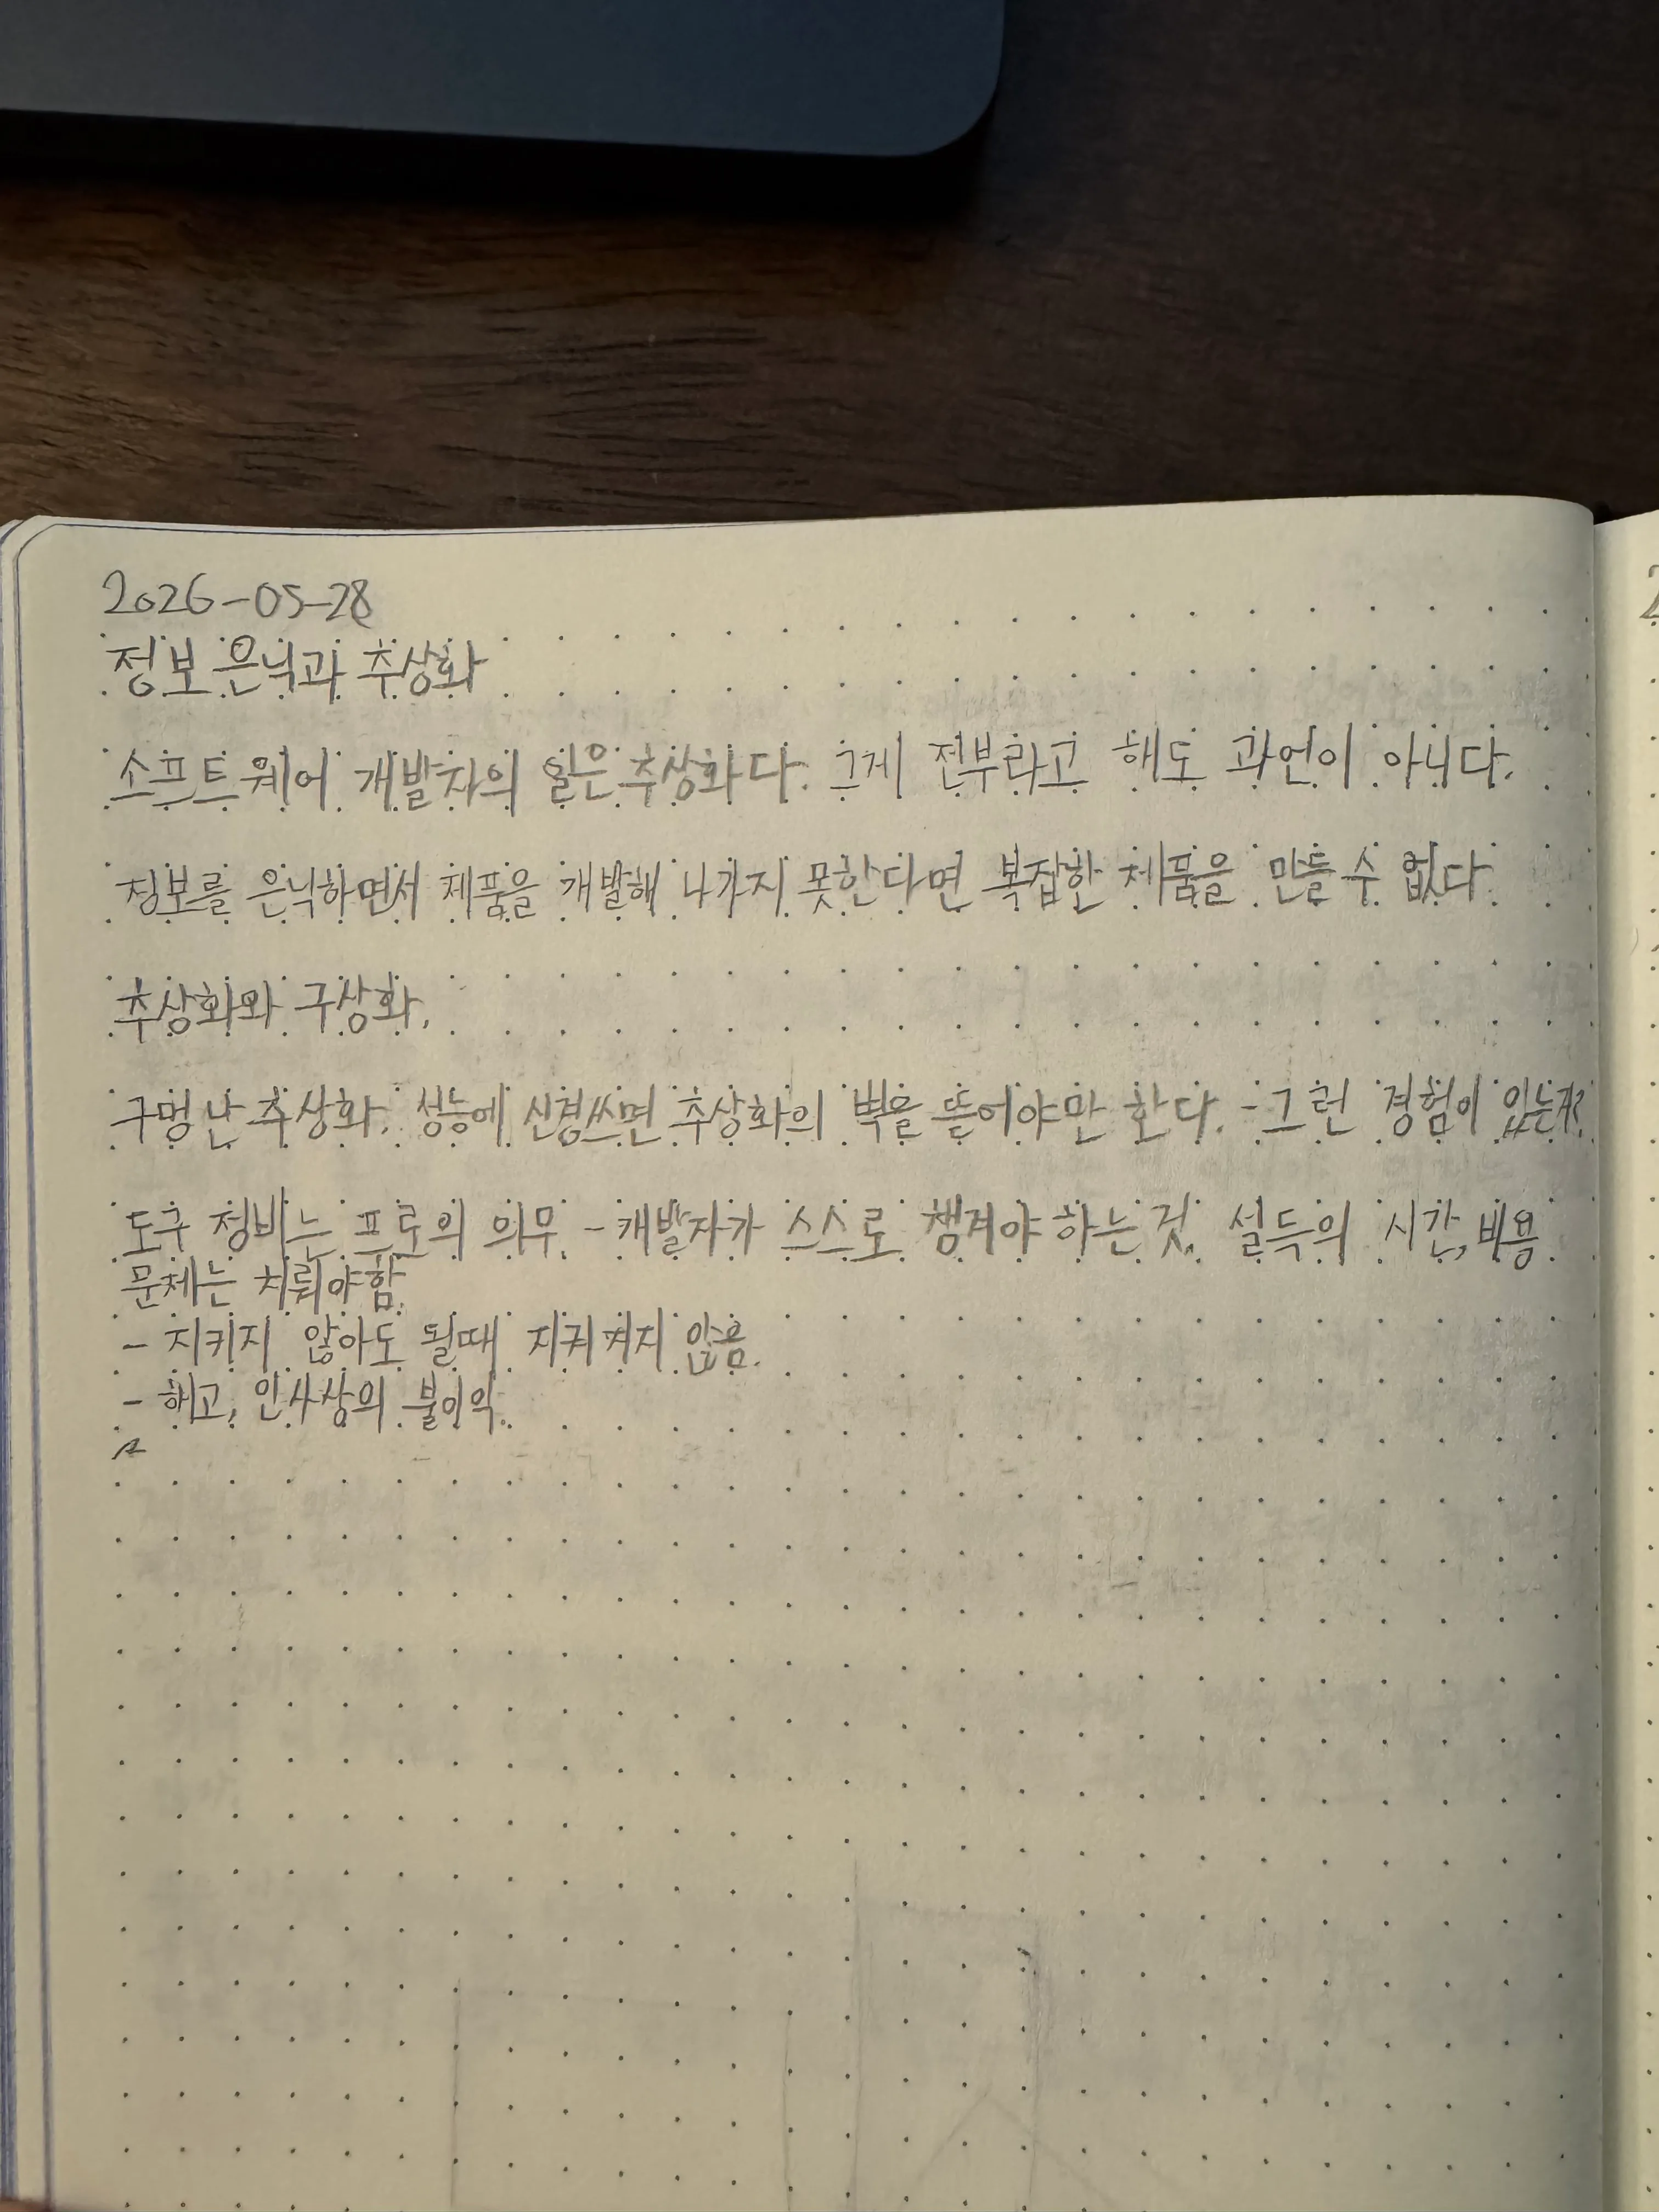 2026-05-28
정보 은닉과 추상화
소프트웨어 개발자의 일은 추상화다. 그게 전부라고 해도 과언이 아니다.
정보를 은닉하면서 제품을 개발해 나가지 못한다면 복잡한 제품을 만들 수 없다.
추상화와 구상화.
구멍 난 추상화. 성능에 신경쓰면 추상화의 벽을 뜯어야만 한다. - 그런 경험이 있는가?
도구 정비는 프로의 의무 - 개발자가 스스로 챙겨야 하는 것. 설득의 시간, 비용
문제는 치뤄야함.
- 지키지 않아도 될때 지켜지지 않음.
- 해고, 인사상의 불이익.